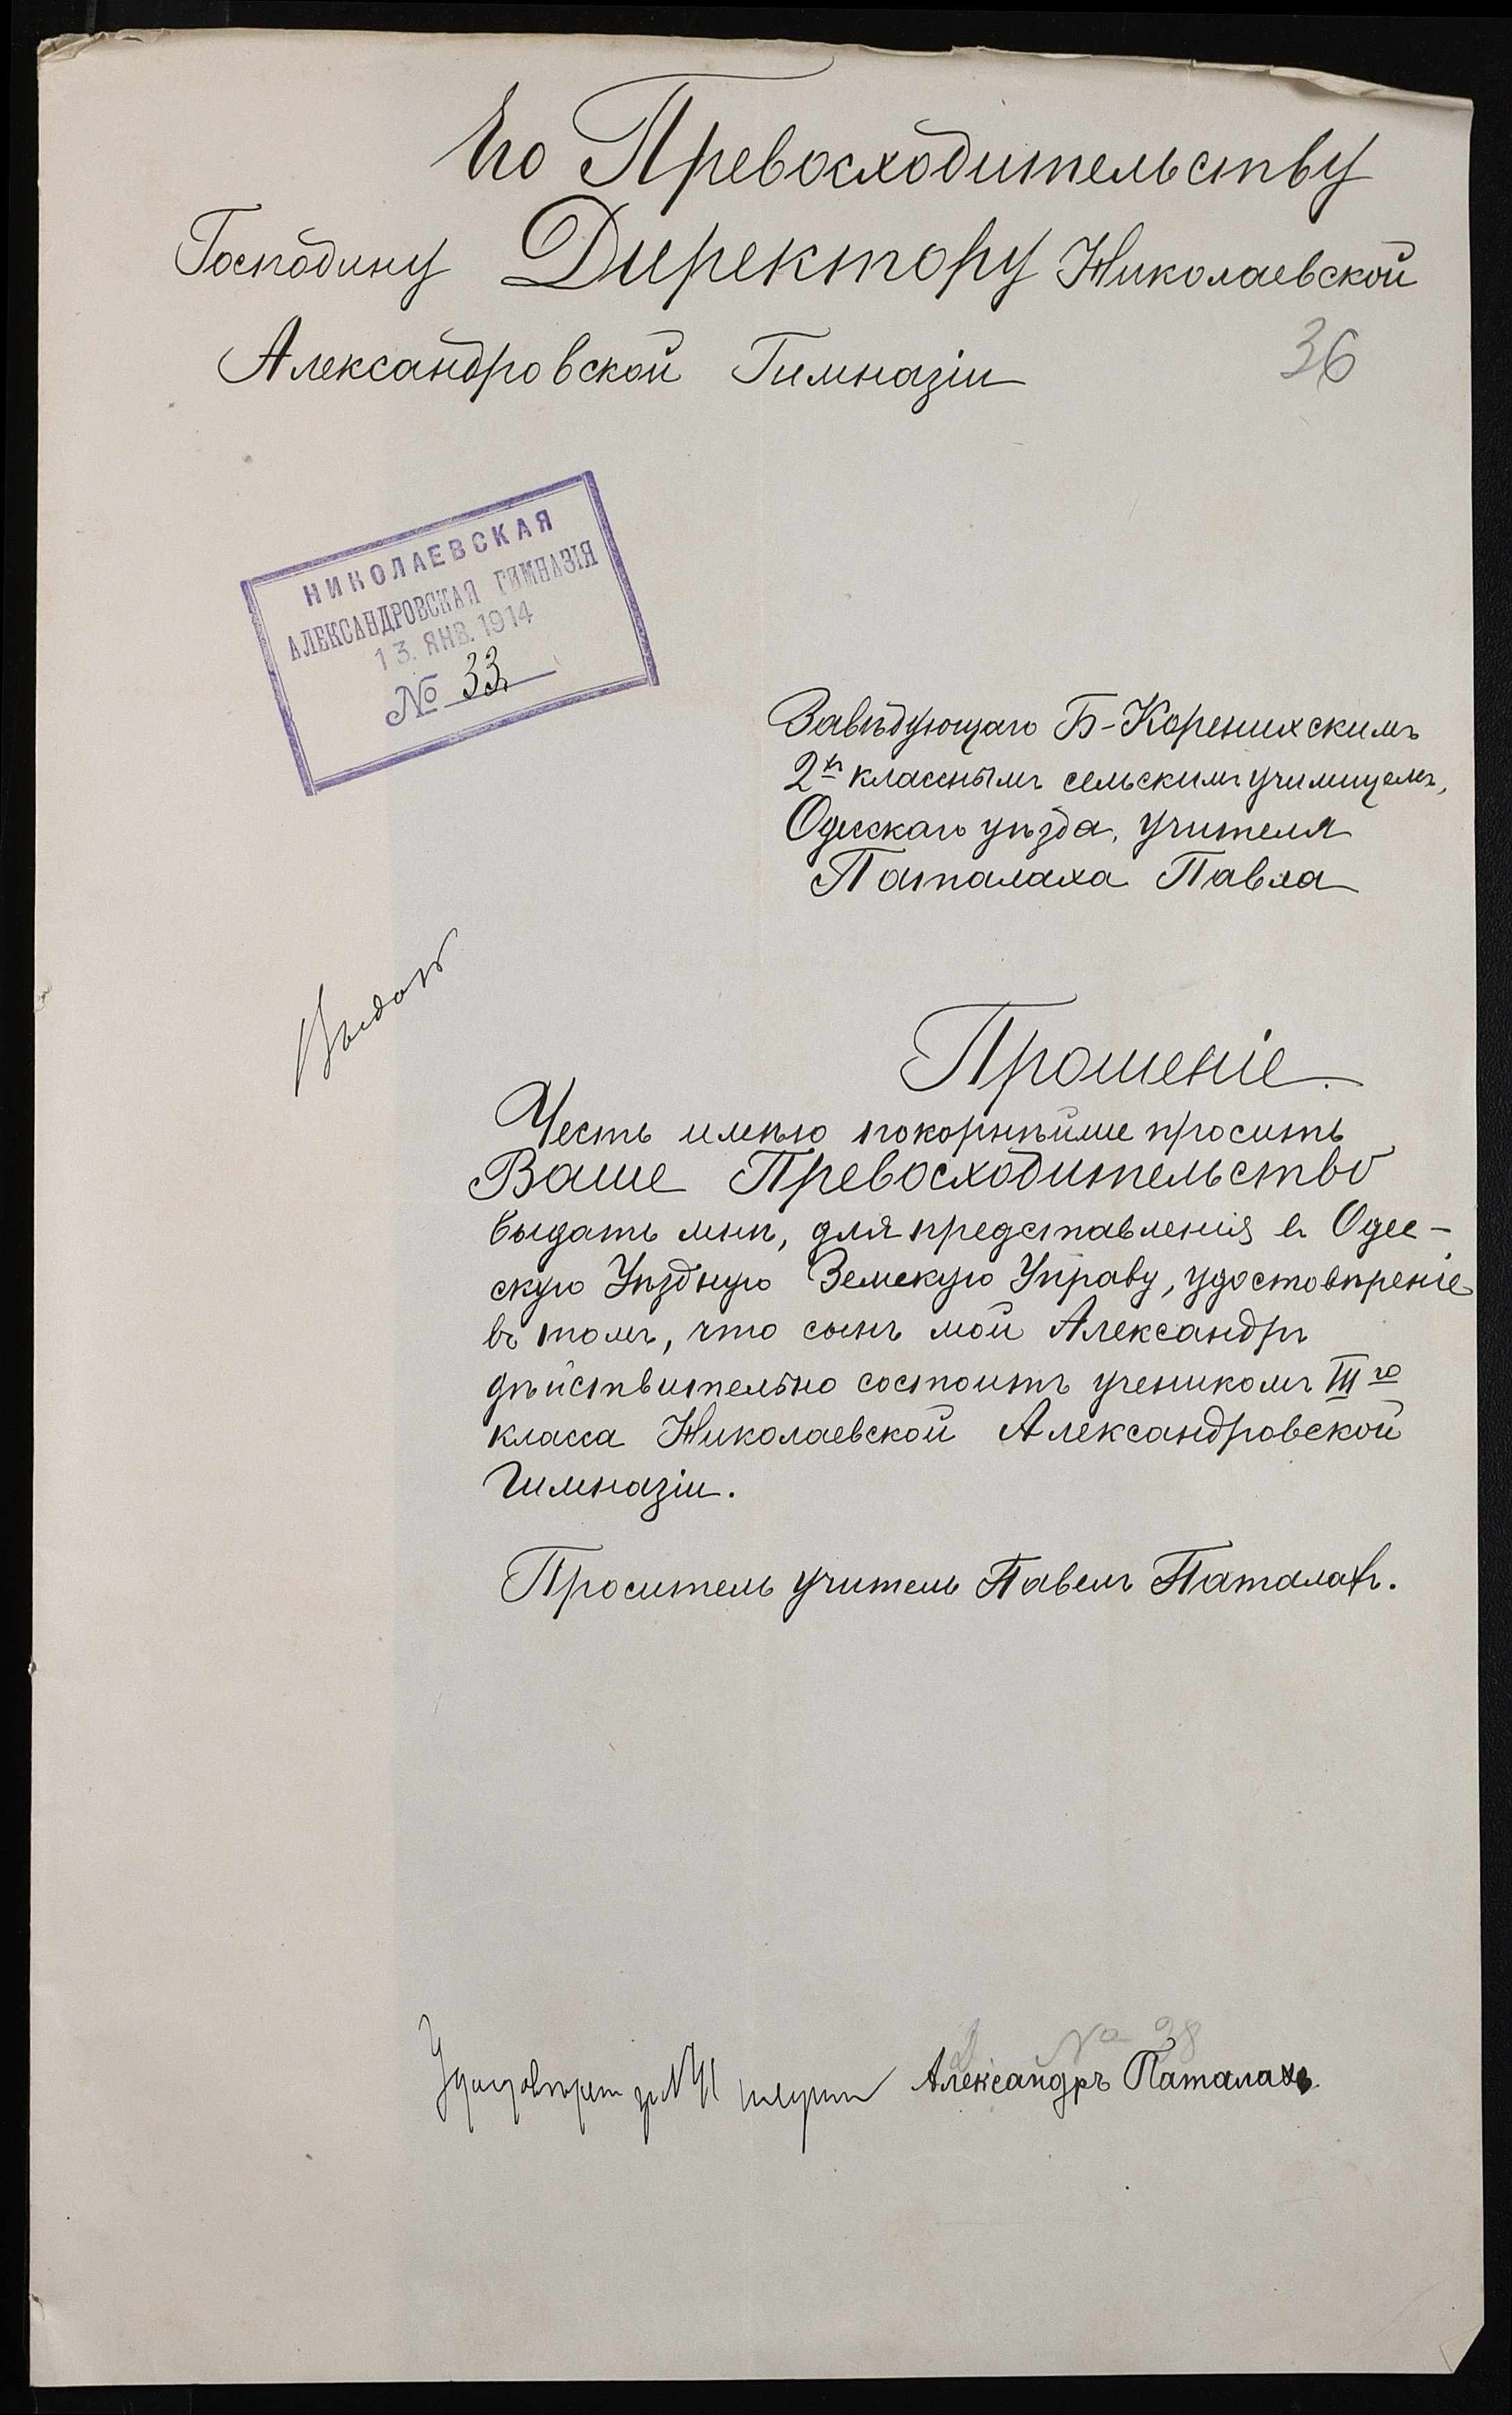 Его Превосходительству
Господину Директору Николаевской
Александровской Гимназіи
36
НИКОЛАЕВСКАЯ
АЛЕКСАНДРОВСКАЯ ГИМНАЗІЯ
13. ЯНВ. 1914
№ 33
Завѣдующаго Б-Коренихскимъ
2хъ класснымъ сельскимъ училищемъ,
Одесскаго уѣзда, учителя
Паталаха Павла
Выдать
Прошеніе.
Честь имѣю покорнѣйше просить
Ваше Превосходительство
выдать мнѣ, для представленія въ Одес-
скую Уѣздную Земскую Управу, удостовѣреніе
въ томъ, что сынъ мой Александръ
дѣйствительно состоитъ ученикомъ III го
класса Николаевской Александровской
Гимназіи.
Проситель учитель Павелъ Паталахъ.
№ 28
Удостовѣрен за № 41 получил Александръ Паталахъ